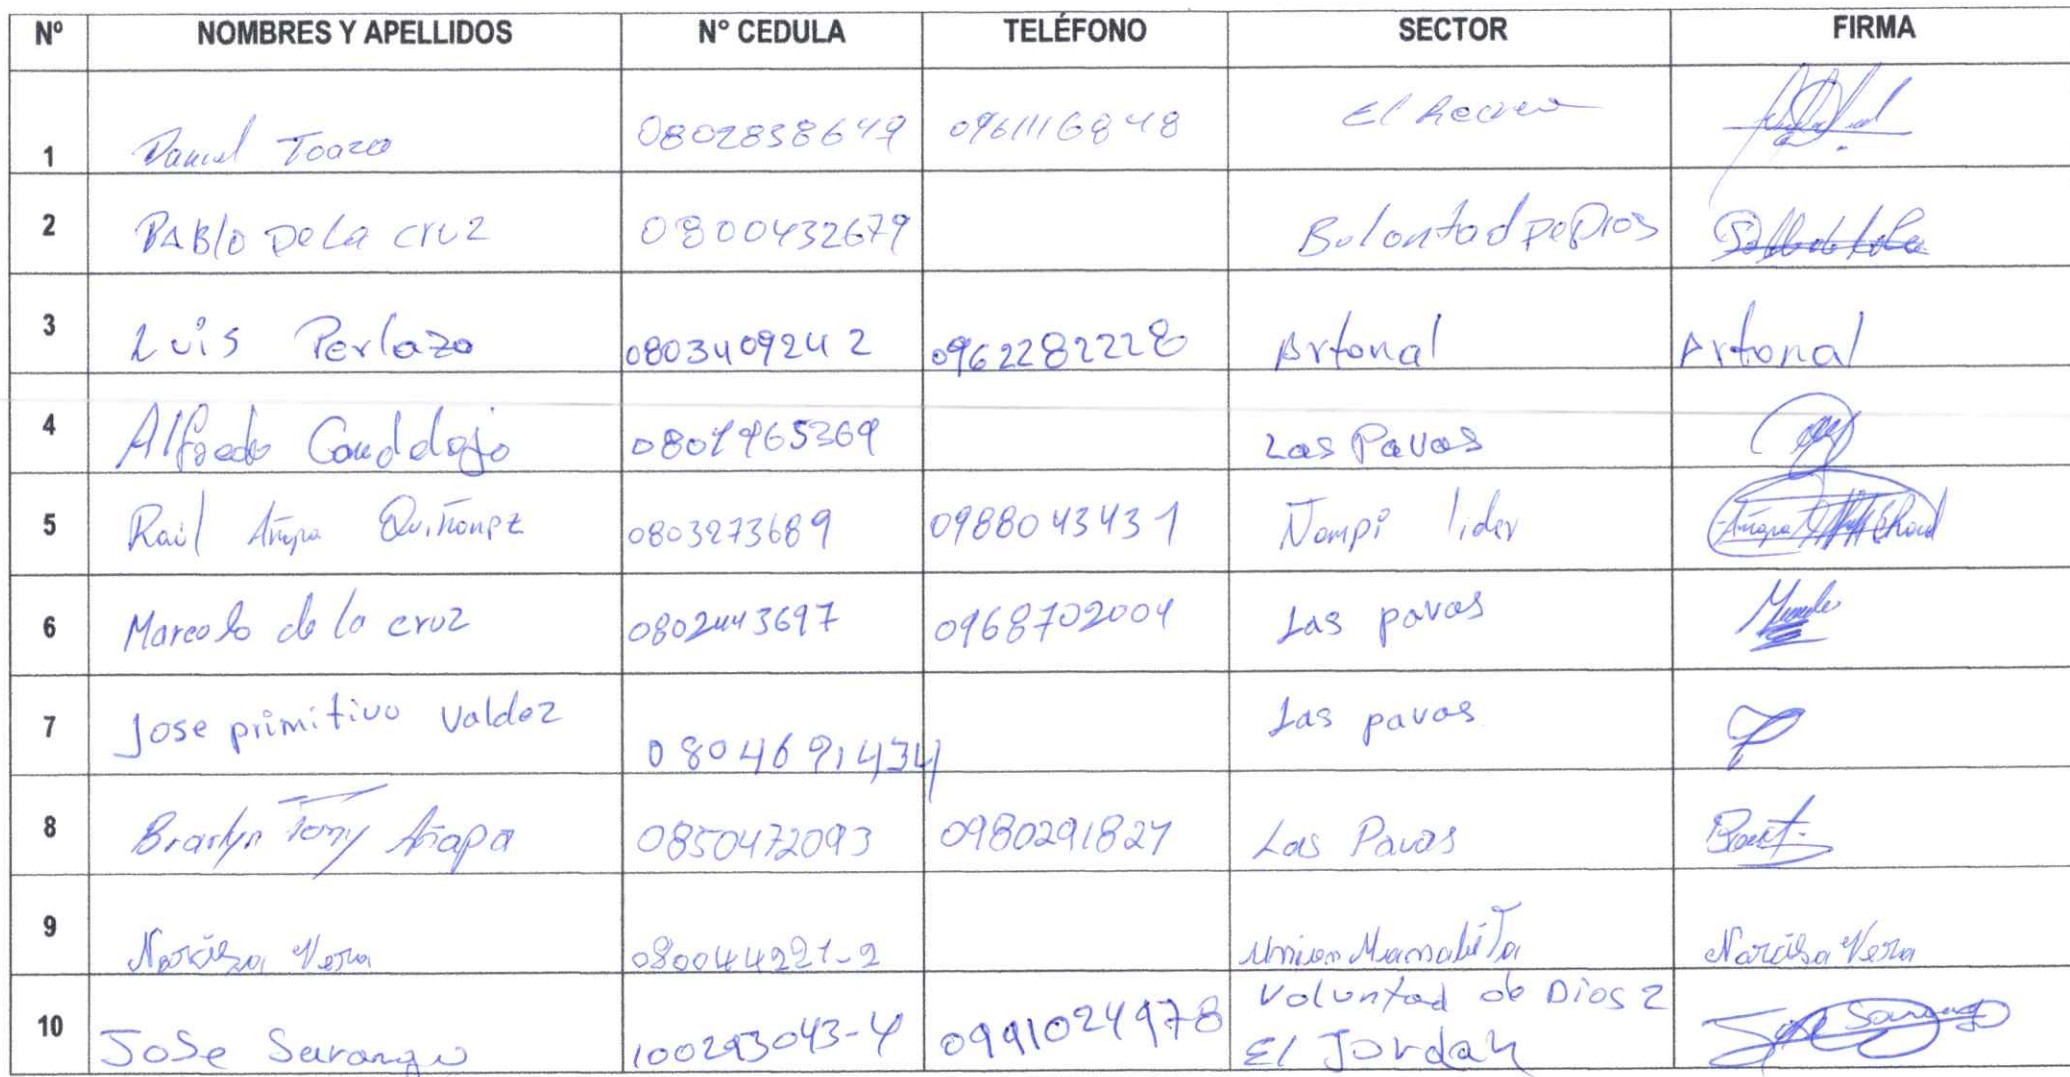 Nº NOMBRES Y APELLIDOS N° CEDULA TELÉFONO SECTOR FIRMA
1 Daniel Toaza 0802838649 0961116848 El Recreo
2 PABlo De La cruz 0800432679 Bolontad DeDios
3 Luis Perlazo 0803409242 0962282228 Artonal Artonal
4 Alfredo 0801965369 Las Pavas
5 Raúl Añapa Quiñonez 0803273689 0988043431 Ñampi lider
6 Marcelo de la cruz 0802443697 0968702004 Las pavas
7 Jose primitivo Valdez 0804691434 Las pavas
8 Tony Añapa 0850472093 0980291827 Las Pavas
9 Narcisa Vera 080044221-2 Union Manabita Narcisa Vera
10 Jose Sarango 100293043-4 0991024978 Voluntad de Dios 2
El Jordan